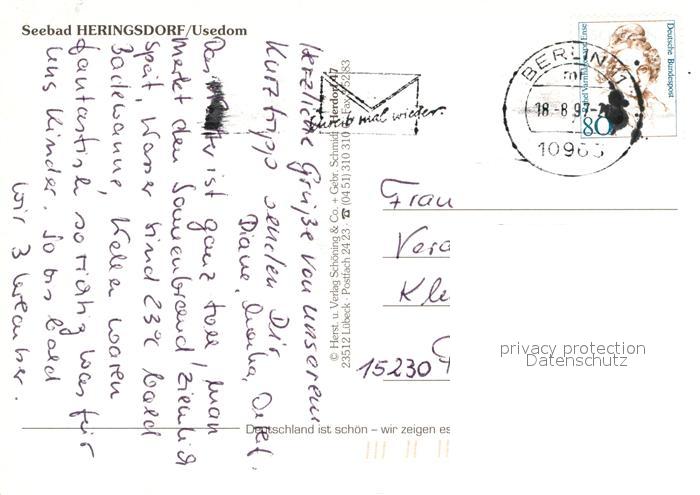 Seebad HERINGSDORF/Usedom
Herzliche Grüße von unserem
Kurztripp senden Dir
Diane, Monika, Detlef.
Das ist ganz toll, man
merkt den Sonnenbrand ziemlich
spät, Wasser sind 23°C bald
Badewanne, Wellen waren
fantastisch so richtig was für
uns Kinder. So bis bald
wir 3 Urlauber.
© Herst. u. Verlag Schöning & Co. + Gebr. Schmidt
23512 Lübeck · Postfach 24 23 · ☎ (04 51) 310 310
Herdorf 47
Fax 952 83
Schreib mal wieder.
BERLIN 11
18.-8.97
10963
Deutsche Bundespost
80
Frau
Vera
Kle
15230
Deutschland ist schön – wir zeigen es
privacy protection
Datenschutz